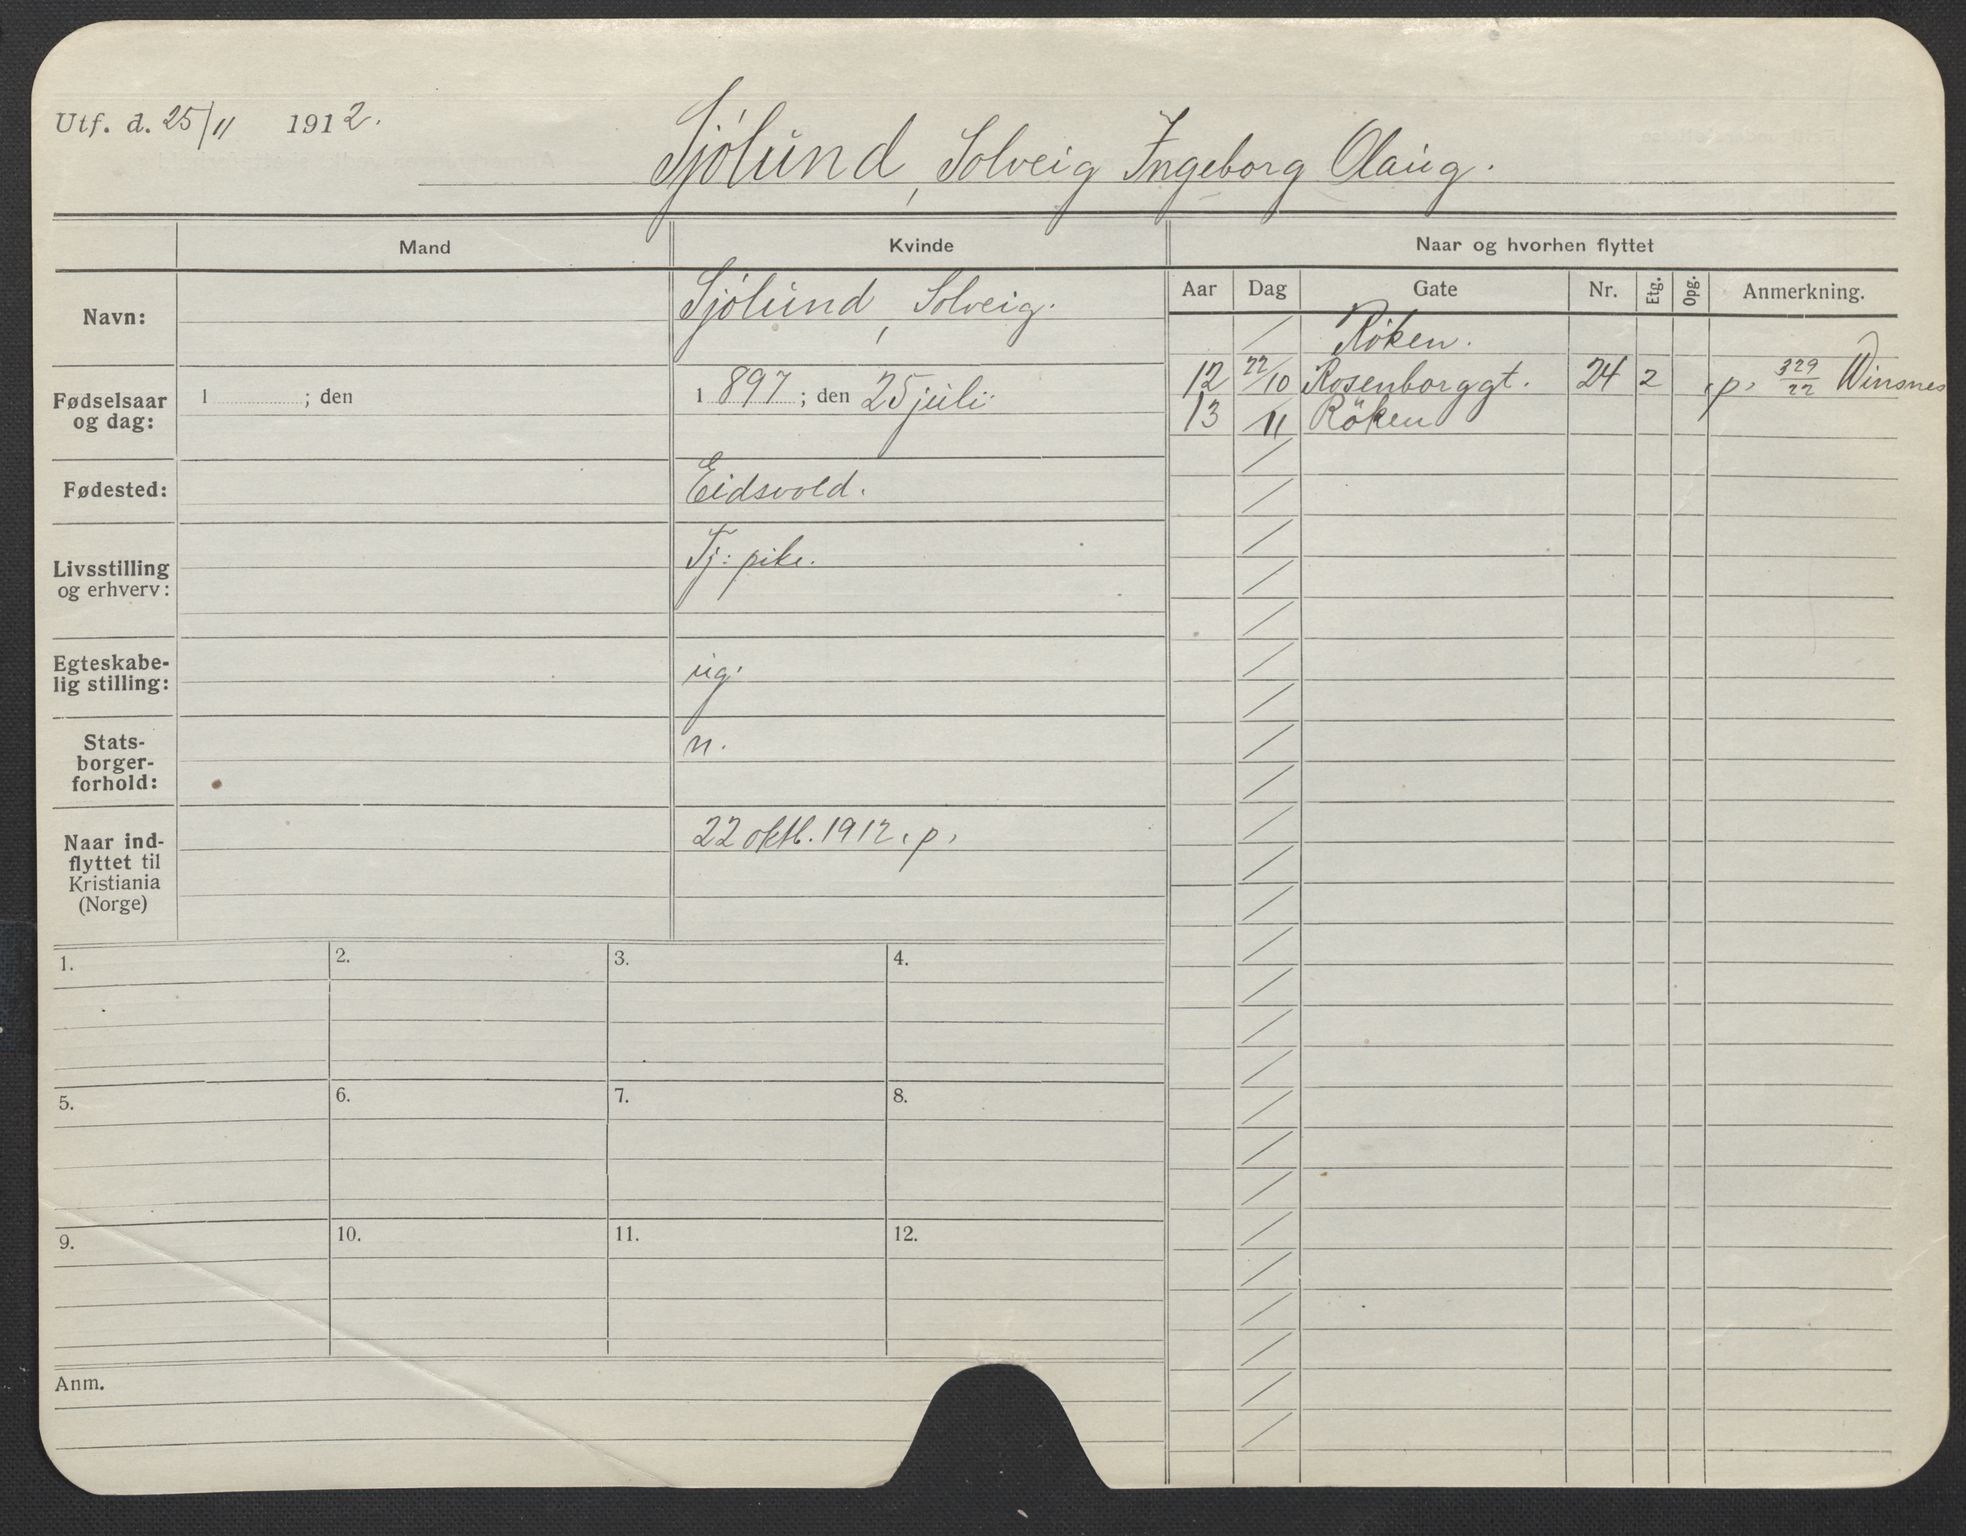 Utf. d. 25/11 1912.
Sjölund, Solveig Ingeborg Olaug.
Mand
Kvinde
Naar og hvorhen flyttet
Navn:
Sjölund, Solveig.
Aar Dag Gate Nr. Etg. Opg. Anmerkning.
/ Röken.
12 22/10 Rosenborggt. 24 2 "p" 329/22 Winsnes
13 /11 Röken
Fødselsaar
og dag:
1 ; den
1897; den 25 juli
Fødested:
Eidsvold.
Livsstilling
og erhverv:
Tj: pike.
Egteskabe-
lig stilling:
ug.
Stats-
borger-
forhold:
n.
Naar ind-
flyttet til
Kristiania
(Norge)
22 oktb. 1912 "p"
1. 2. 3. 4.
5. 6. 7. 8.
9. 10. 11. 12.
Anm.